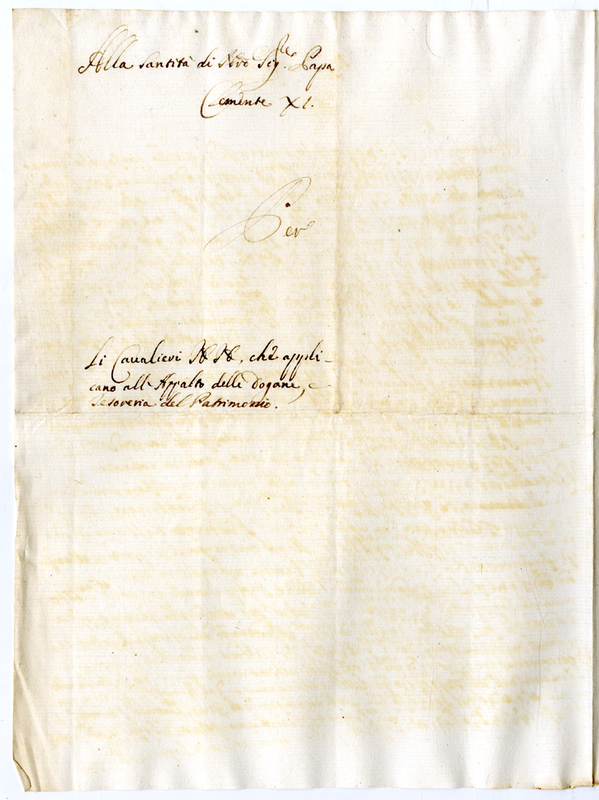 Alla Santità di Nro Sigre Papa
Clemente XI.
Per
Li Caualieri N. N. chè appli-
cano all' Appalto delle Dogane, e
Tesoreria del Patrimonio.